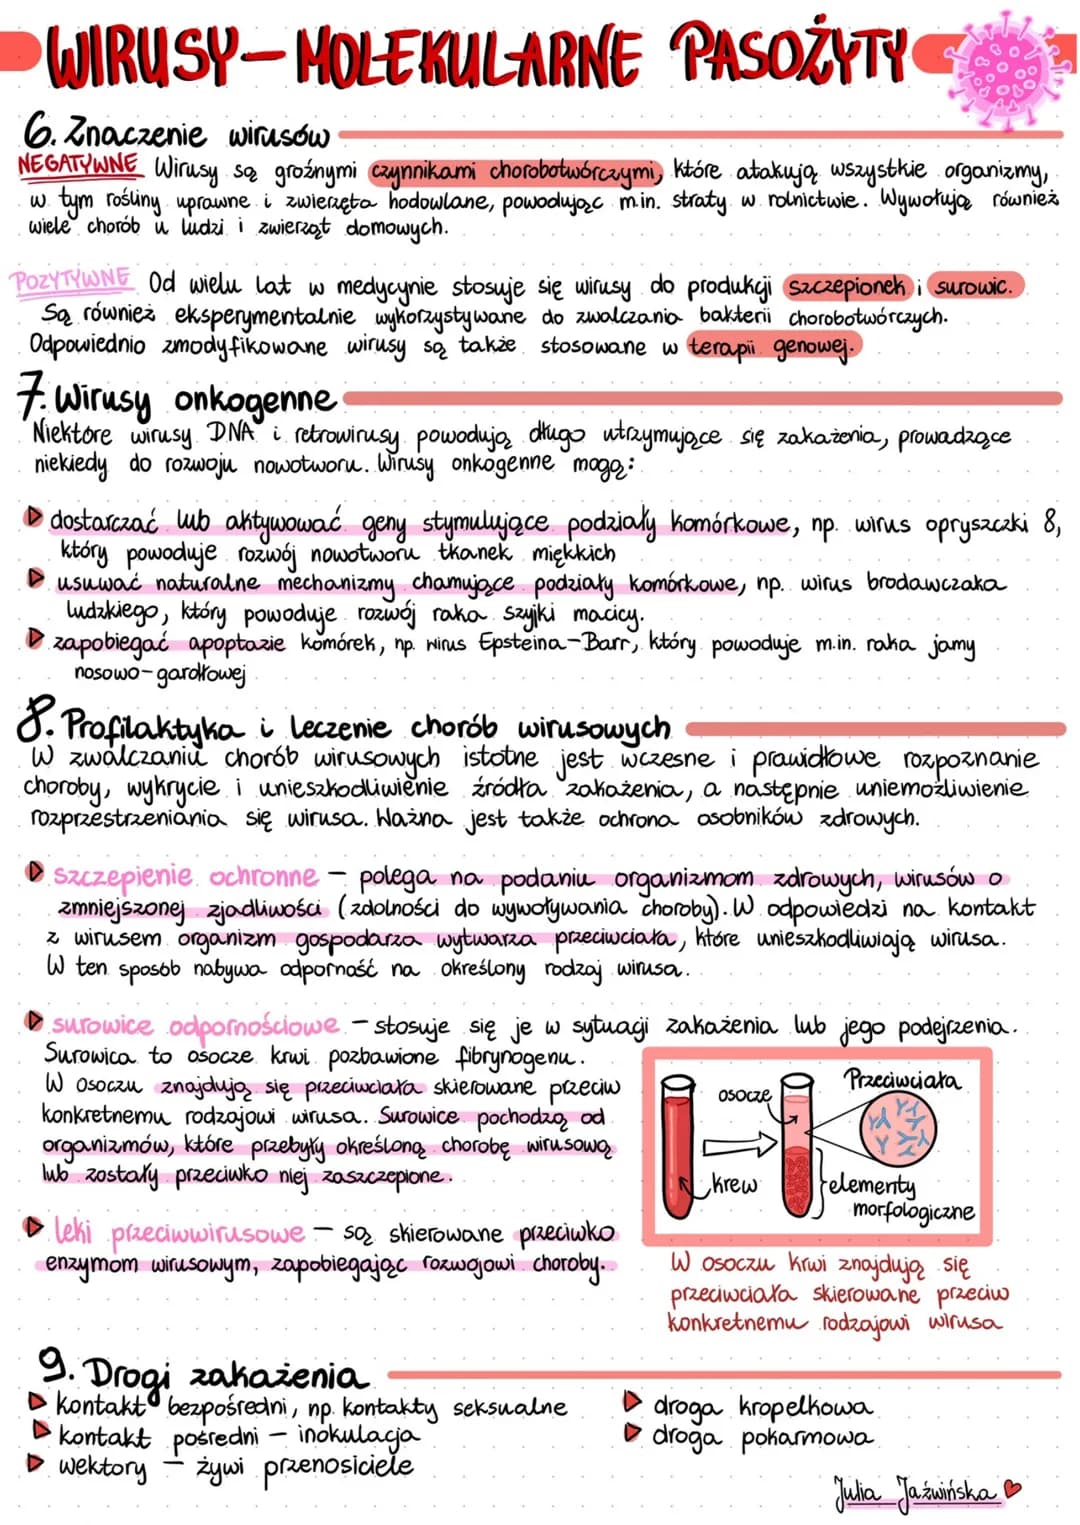 WIRUSY – MOLEKULARNE PASOŻYTY
6. Znaczenie wirusów
NEGATYWNE Wirusy są groźnymi czynnikami chorobotwórczymi, które atakują wszystkie organizmy,
w tym rośliny uprawne i zwierzęta hodowlane, powodując m.in. straty w rolnictwie. Wywołują również
wiele chorób u ludzi i zwierząt domowych.
POZYTYWNE Od wielu lat w medycynie stosuje się wirusy do produkcji szczepionek i surowic.
Są również eksperymentalnie wykorzystywane do zwalczania bakterii chorobotwórczych.
Odpowiednio zmodyfikowane wirusy są także stosowane w terapii genowej.
7. Wirusy onkogenne
Niektóre wirusy DNA i retrowirusy powodują długo utrzymujące się zakażenia, prowadzące
niekiedy do rozwoju nowotworu. Wirusy onkogenne mogą:
dostarczać lub aktywować geny stymulujące podziały komórkowe, np. wirus opryszczki 8,
który powoduje rozwój nowotworu tkanek miękkich
usuwać naturalne mechanizmy chamujące podziały komórkowe, np. wirus brodawczaka
ludzkiego, który powoduje rozwój raka szyjki macicy.
zapobiegać apoptazie komórek, np. wirus Epsteina-Barr, który powoduje m.in. raka jamy
nosowo-gardłowej
8. Profilaktyka i leczenie chorób wirusowych
W zwalczaniu chorób wirusowych istotne jest wczesne i prawidłowe rozpoznanie
choroby, wykrycie i unieszkodliwienie źródła zakażenia, a następnie uniemożliwienie
rozprzestrzeniania się wirusa. Ważna jest także ochrona osobników zdrowych.
szczepienie ochronne – polega na podaniu organizmom zdrowych, wirusów o
zmniejszonej zjadliwości (zdolności do wywoływania choroby). W odpowiedzi na kontakt
z wirusem organizm gospodarza wytwarza przeciwciała, które unieszkodliwiają wirusa.
W ten sposób nabywa odporność na określony rodzaj wirusa.
surowice odpornościowe – stosuje się je w sytuacji zakażenia lub jego podejrzenia.
Surowica to osocze krwi pozbawione fibrynogenu.
W osoczu znajdują się przeciwciała skierowane przeciw
konkretnemu rodzajowi wirusa. Surowice pochodzą od
organizmów, które przebyły określoną chorobę wirusową
lub zostały przeciwko niej zaszczepione.
leki przeciwwirusowe – są skierowane przeciwko
enzymom wirusowym, zapobiegając rozwojowi choroby.
osocze
Przeciwciała
krew
elementy
morfologiczne
W osoczu krwi znajdują się
przeciwciała skierowane przeciw
konkretnemu rodzajowi wirusa
9. Drogi zakażenia
kontakt bezpośredni, np. kontakty seksualne
kontakt pośredni – inokulacja
wektory – żywi przenosiciele
droga kropelkowa
droga pokarmowa
Julia Jaźwińska